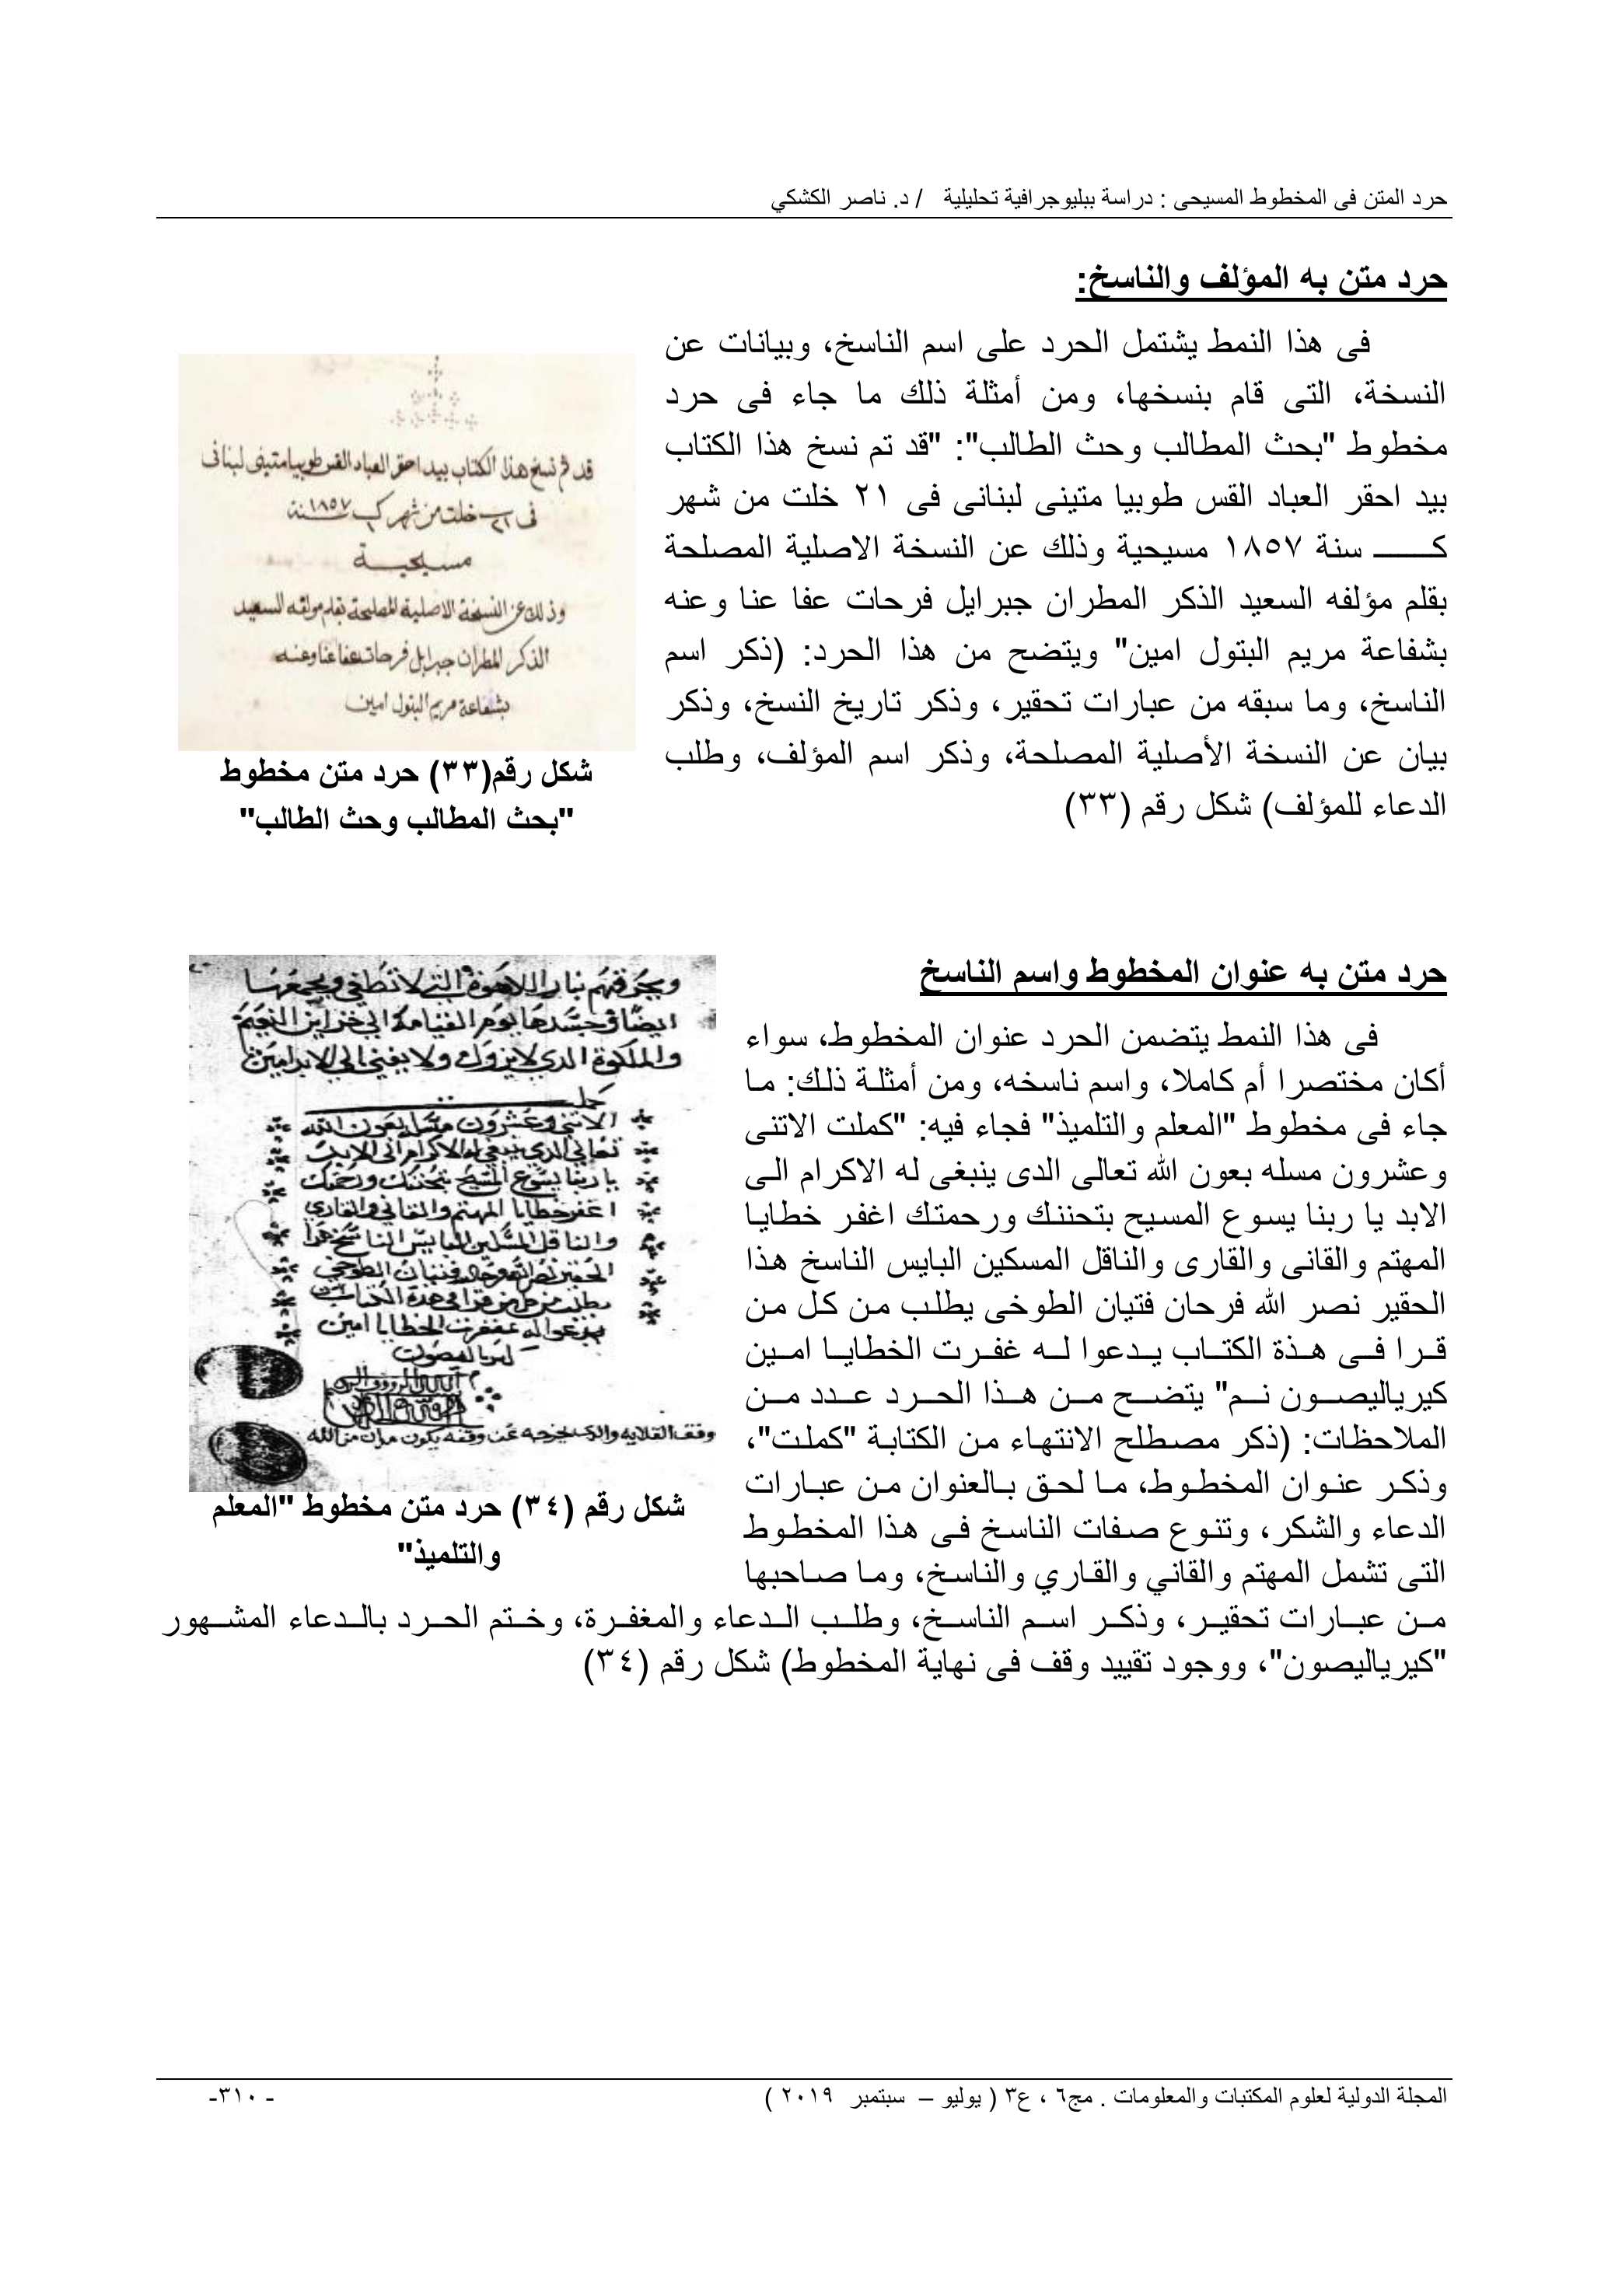 حرد المتن فى المخطوط المسيحى : دراسة ببليوجرافية تحليلية / د. ناصر الكشكي
حرد متن به المؤلف والناسخ:
فى هذا النمط يشتمل الحرد على اسم الناسخ، وبيانات عن
النسخة، التى قام بنسخها، ومن أمثلة ذلك ما جاء فى حرد
مخطوط "بحث المطالب وحث الطالب": "قد تم نسخ هذا الكتاب
بيد احقر العباد القس طوبيا متينى لبنانى فى ٢١ خلت من شهر
كـــــ سنة ١٨٥٧ مسيحية وذلك عن النسخة الاصلية المصلحة
بقلم مؤلفه السعيد الذكر المطران جبرايل فرحات عفا عنا وعنه
بشفاعة مريم البتول امين" ويتضح من هذا الحرد: (ذكر اسم
الناسخ، وما سبقه من عبارات تحقير، وذكر تاريخ النسخ، وذكر
بيان عن النسخة الأصلية المصلحة، وذكر اسم المؤلف، وطلب
الدعاء للمؤلف) شكل رقم (٣٣)
قد تم نسخ هذا الكتاب بيد احقر العباد القس طوبيا متينى لبنانى
فى ٢١ خلت من شهر ك سنة ١٨٥٧
مسيحية
وذلك عن النسخة الاصلية المصلحة بقلم مولفه السعيد
الذكر المطران جبرايل فرحات عفا عنا وعنه
بشفاعة مريم البتول امين
شكل رقم(٣٣) حرد متن مخطوط
"بحث المطالب وحث الطالب"
حرد متن به عنوان المخطوط واسم الناسخ
فى هذا النمط يتضمن الحرد عنوان المخطوط، سواء
أكان مختصرا أم كاملا، واسم ناسخه، ومن أمثلة ذلك: ما
جاء فى مخطوط "المعلم والتلميذ" فجاء فيه: "كملت الاتنى
وعشرون مسله بعون الله تعالى الدى ينبغى له الاكرام الى
الابد يا ربنا يسوع المسيح بتحننك ورحمتك اغفر خطايا
المهتم والقانى والقارى والناقل المسكين البايس الناسخ هذا
الحقير نصر الله فرحان فتيان الطوخى يطلب من كل من
قرا فى هذة الكتاب يدعوا له غفرت الخطايا امين
كيرياليصون نم" يتضح من هذا الحرد عدد من
الملاحظات: (ذكر مصطلح الانتهاء من الكتابة "كملت"،
وذكر عنوان المخطوط، ما لحق بالعنوان من عبارات
الدعاء والشكر، وتنوع صفات الناسخ فى هذا المخطوط
التى تشمل المهتم والقاني والقاري والناسخ، وما صاحبها
من عبارات تحقير، وذكر اسم الناسخ، وطلب الدعاء والمغفرة، وختم الحرد بالدعاء المشهور
"كيرياليصون"، ووجود تقييد وقف فى نهاية المخطوط) شكل رقم (٣٤)
ويحرقهم بنار اللاهوة التى لا تطفى ويجمعها
ايضا فى جسدها يوم القيامة الى خزاين النعيم
والملكوة الدى لا يزول ولا يفنى الى الابد امين
كملت
الاتنى وعشرون مسله بعون الله
تعالى الدى ينبغى له الاكرام الى الابد
يا ربنا يسوع المسيح بتحننك ورحمتك
اغفر خطايا المهتم والقانى والقارى
والناقل المسكين البايس الناسخ هذا
الحقير نصر الله فرحان فتيان الطوخى
يطلب من كل من قرا فى هدة الكتاب
يدعوا له غفرت الخطايا امين
شكل رقم (٣٤) حرد متن مخطوط "المعلم
والتلميذ"
المجلة الدولية لعلوم المكتبات والمعلومات . مج٦ ، ع٣ ( يوليو – سبتمبر ٢٠١٩ )
- ٣١٠-